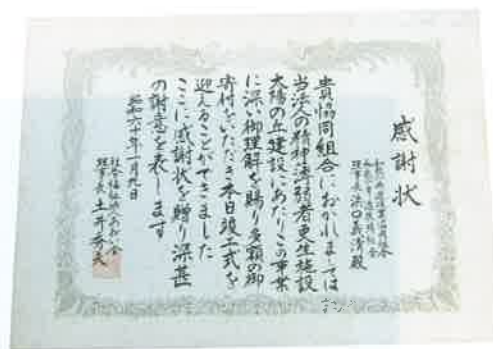 感謝状
理事長 浜口義清殿
貴協同組合におかれましては
当法人の精神薄弱者更生施設
太陽の丘建設にあたりこの事業
に深い御理解を賜り多額の御
寄付をいただき本日竣工式を
迎えることができました
ここに感謝状を贈り深甚
の謝意を表します
昭和六十年一月九日
社会福祉法人
理事長 土井